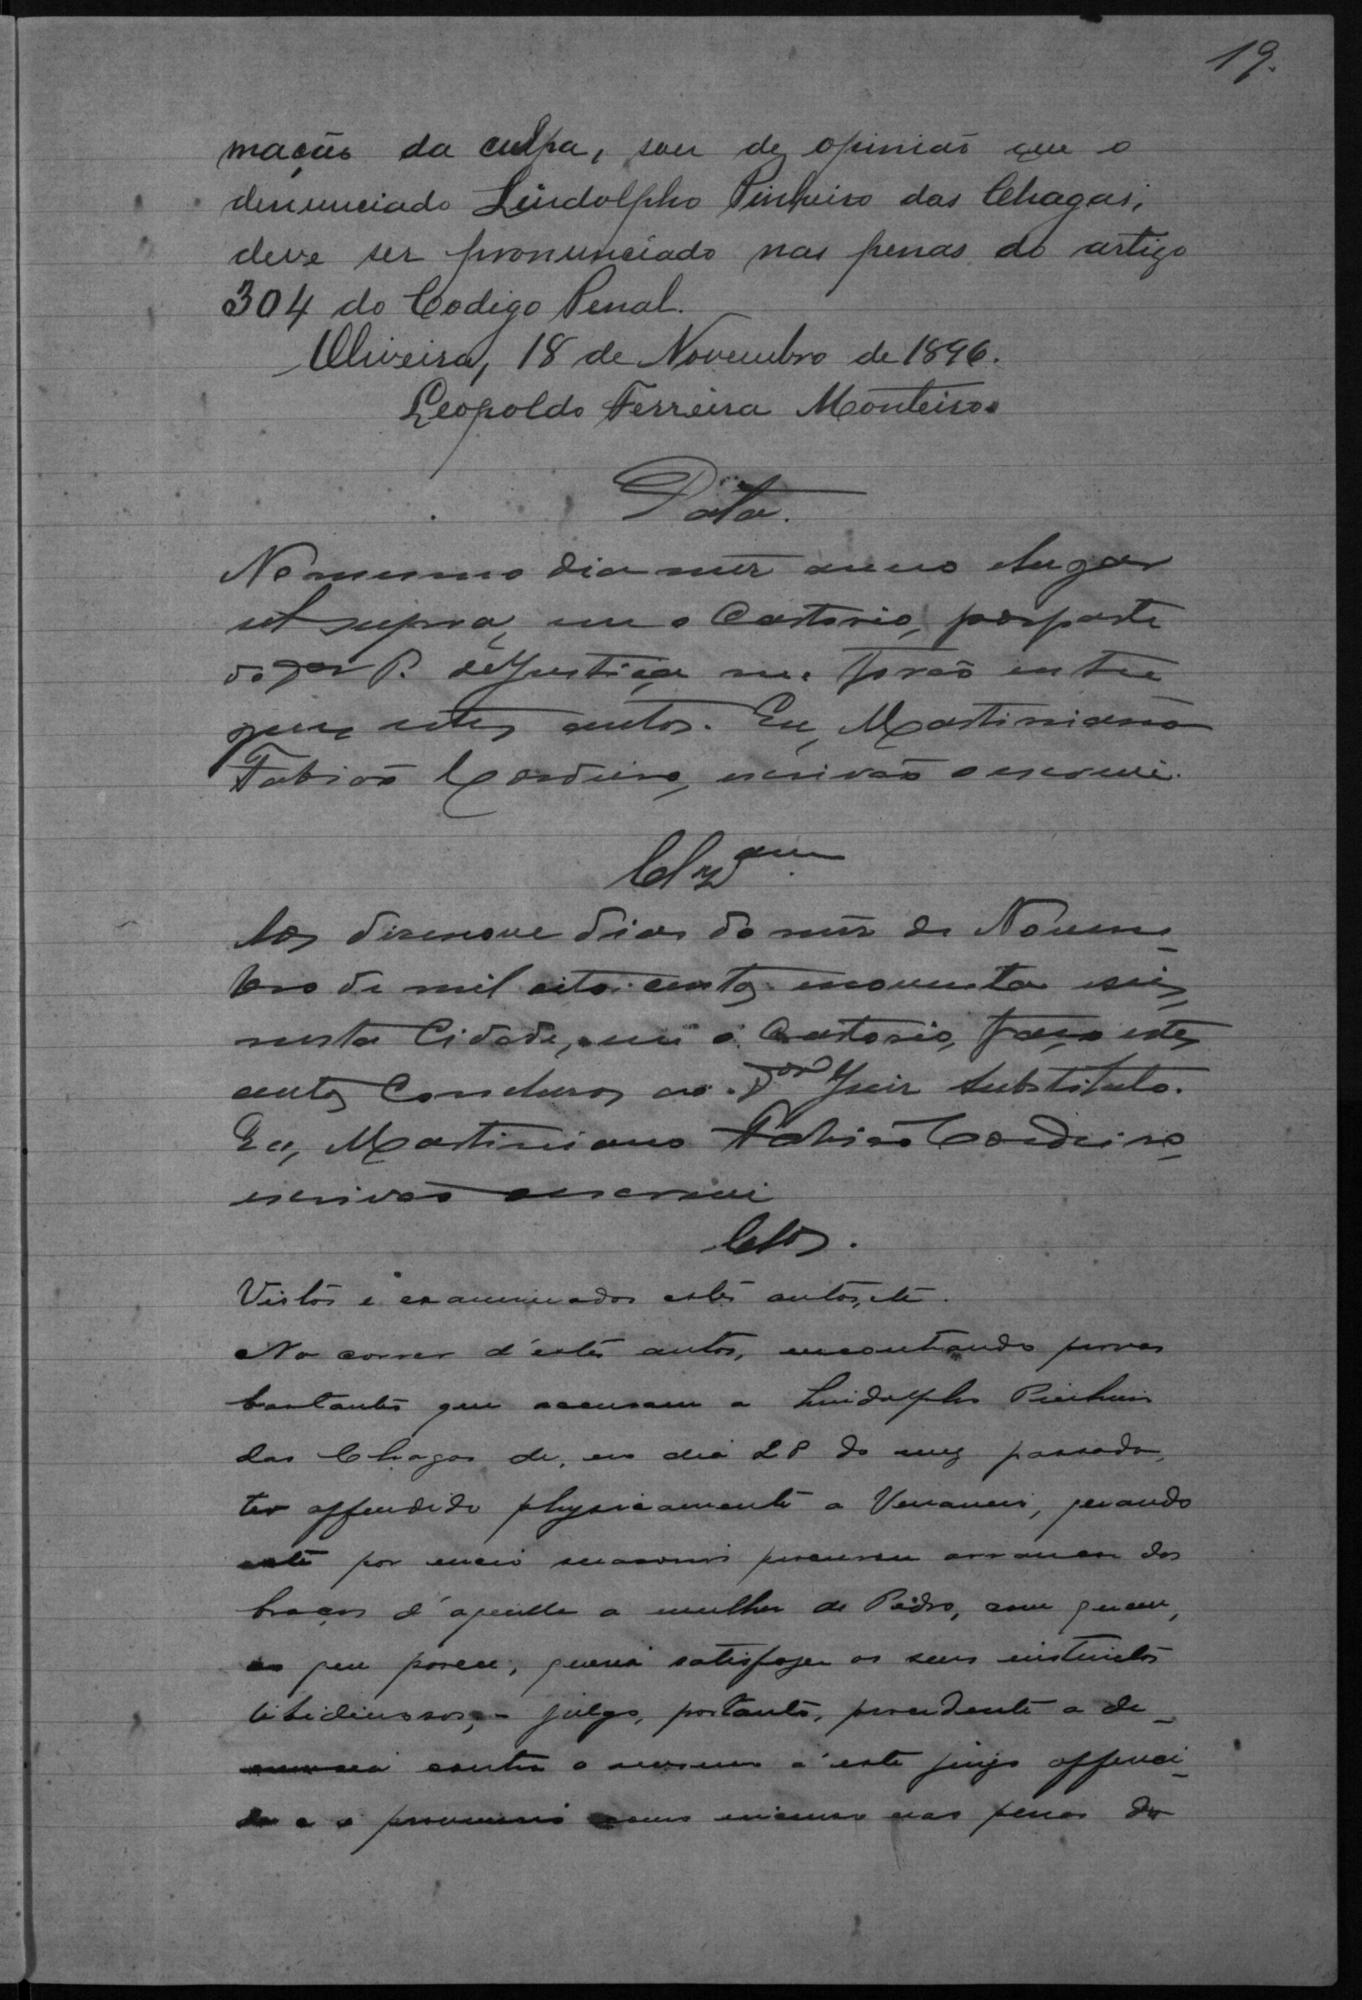 19.
mação da culpa, sou de opinião que o
denunciado Lindolpho Pinheiro das Chagas,
deve ser pronunciado nas penas do artigo
304 do Codigo Penal.
Oliveira, 18 de Novembro de 1896.
Leopoldo Ferreira Monteiro.
Data.
No mesmo dia mez anno e lugar
ut supra, em o Cartorio, por parte
do P. de Justiça me forão entre
gues estes autos. Eu, Martiniano
Fabião Cordeiro, escrivão o escrevi.
Clzam.
Aos dizenove dias do mez de Novem-
bro de mil oito centos noventa e seis,
nesta Cidade, em o Cartorio, faço estes
autos Conclusos ao Dor Juiz Substituto.
Eu, Martiniano Fabião Cordeiro,
escrivão o escrevi
Clos.
Vistos e examinados estes autos, etc.
No correr d'estes autos, encontrando provas
bastantes que accusam a Lindolpho Pinheiro
das Chagas de, no dia 28 do mez passado,
ter offendido physicamente a Venancio, quando
este por meio procurou arrancar dos
braços d'aquelle a mulher de Pedro, com quem,
ao que parece, queria satisfazer os seus instinctos
libidinosos, - julgo, portanto, procedente a de-
nuncia contra o mesmo a este juizo offereci-
da e o pronuncio como incurso nas penas do